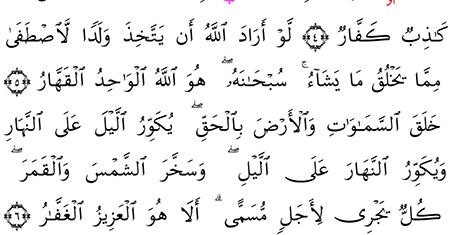 كَـٰذِبٌ كَفَّارٌ ﴿٤﴾ لَّوْ أَرَادَ ٱللَّهُ أَن يَتَّخِذَ وَلَدًا لَّٱصْطَفَىٰ
مِمَّا يَخْلُقُ مَا يَشَآءُ ۚ سُبْحَـٰنَهُۥ ۖ هُوَ ٱللَّهُ ٱلْوَٰحِدُ ٱلْقَهَّارُ ﴿٥﴾
خَلَقَ ٱلسَّمَـٰوَٰتِ وَٱلْأَرْضَ بِٱلْحَقِّ ۖ يُكَوِّرُ ٱلَّيْلَ عَلَى ٱلنَّهَارِ
وَيُكَوِّرُ ٱلنَّهَارَ عَلَى ٱلَّيْلِ ۖ وَسَخَّرَ ٱلشَّمْسَ وَٱلْقَمَرَ ۖ
كُلٌّ يَجْرِى لِأَجَلٍ مُّسَمًّى ۗ أَلَا هُوَ ٱلْعَزِيزُ ٱلْغَفَّـٰرُ ﴿٦﴾